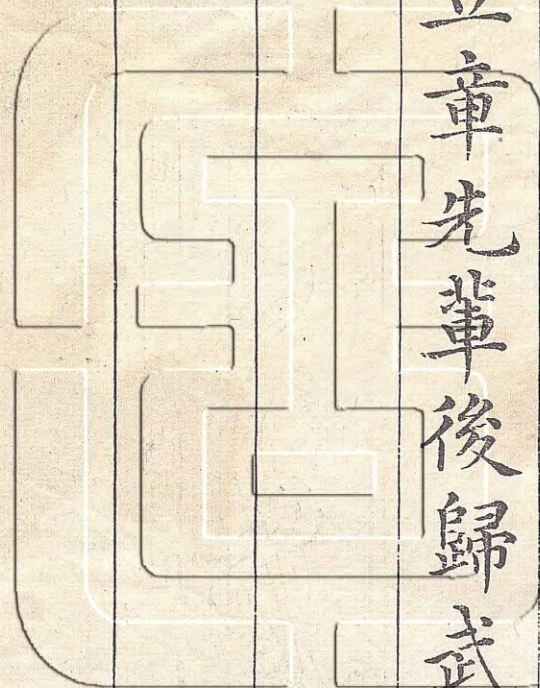 章先輩後歸武